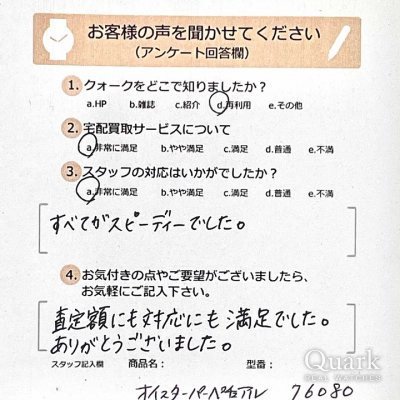 お客様の声を聞かせてください
(アンケート回答欄)
1. クォークをどこで知りましたか？
a.HP b.雑誌 c.紹介 d.再利用 e.その他
2. 宅配買取サービスについて
a.非常に満足 b.やや満足 c.満足 d.普通 e.不満
3. スタッフの対応はいかがでしたか？
a.非常に満足 b.やや満足 c.満足 d.普通 e.不満
すべてがスピーディーでした。
4. お気付きの点やご要望がございましたら、
お気軽にご記入下さい。
査定額にも対応にも満足でした。
ありがとうございました。
スタッフ記入欄 商品名： 型番：
オイスターパーペチュアル 76080
Quark
REAL WATCHES